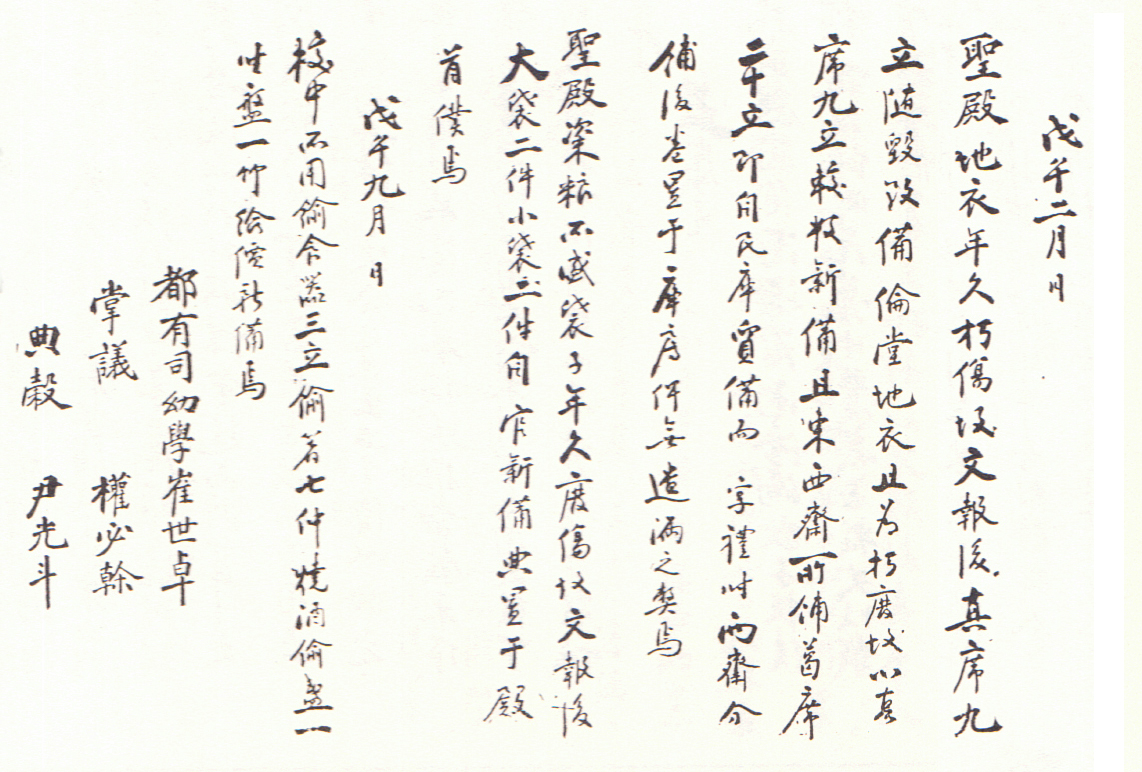 戊午二月 日
聖殿地衣年久朽傷故文報後眞席九
立随毀改備倫堂地衣且爲朽度故以眞
席九立較数新備且東西齋所鋪茵席
二十立卽自民庫貿備而 享禮時兩齋分
鋪後卷置于庫房俾無造漏之獘焉
聖殿粢 不盛袋子年久度傷故文報後
大袋二件小袋三件自 官新備典置于殿
首僕焉
戊午九月 日
校中不用鍮合器三立鍮著七件燒酒鍮盃一
坐盤一竹 備焉
都有司幼學崔世卓
掌議 權必幹
典穀 尹光斗